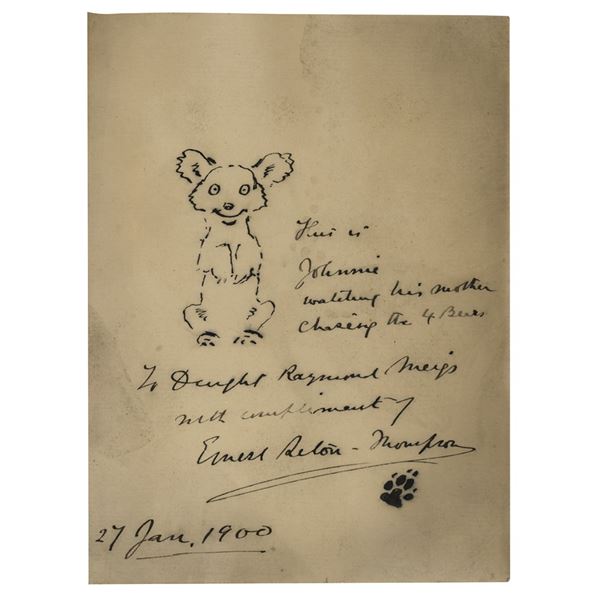 This is
Johnnie
watching his mother
chasing the 4 Bears
To Dwight Raymond Meigs
with compliments of
Ernest Seton-Thompson
27 Jan, 1900